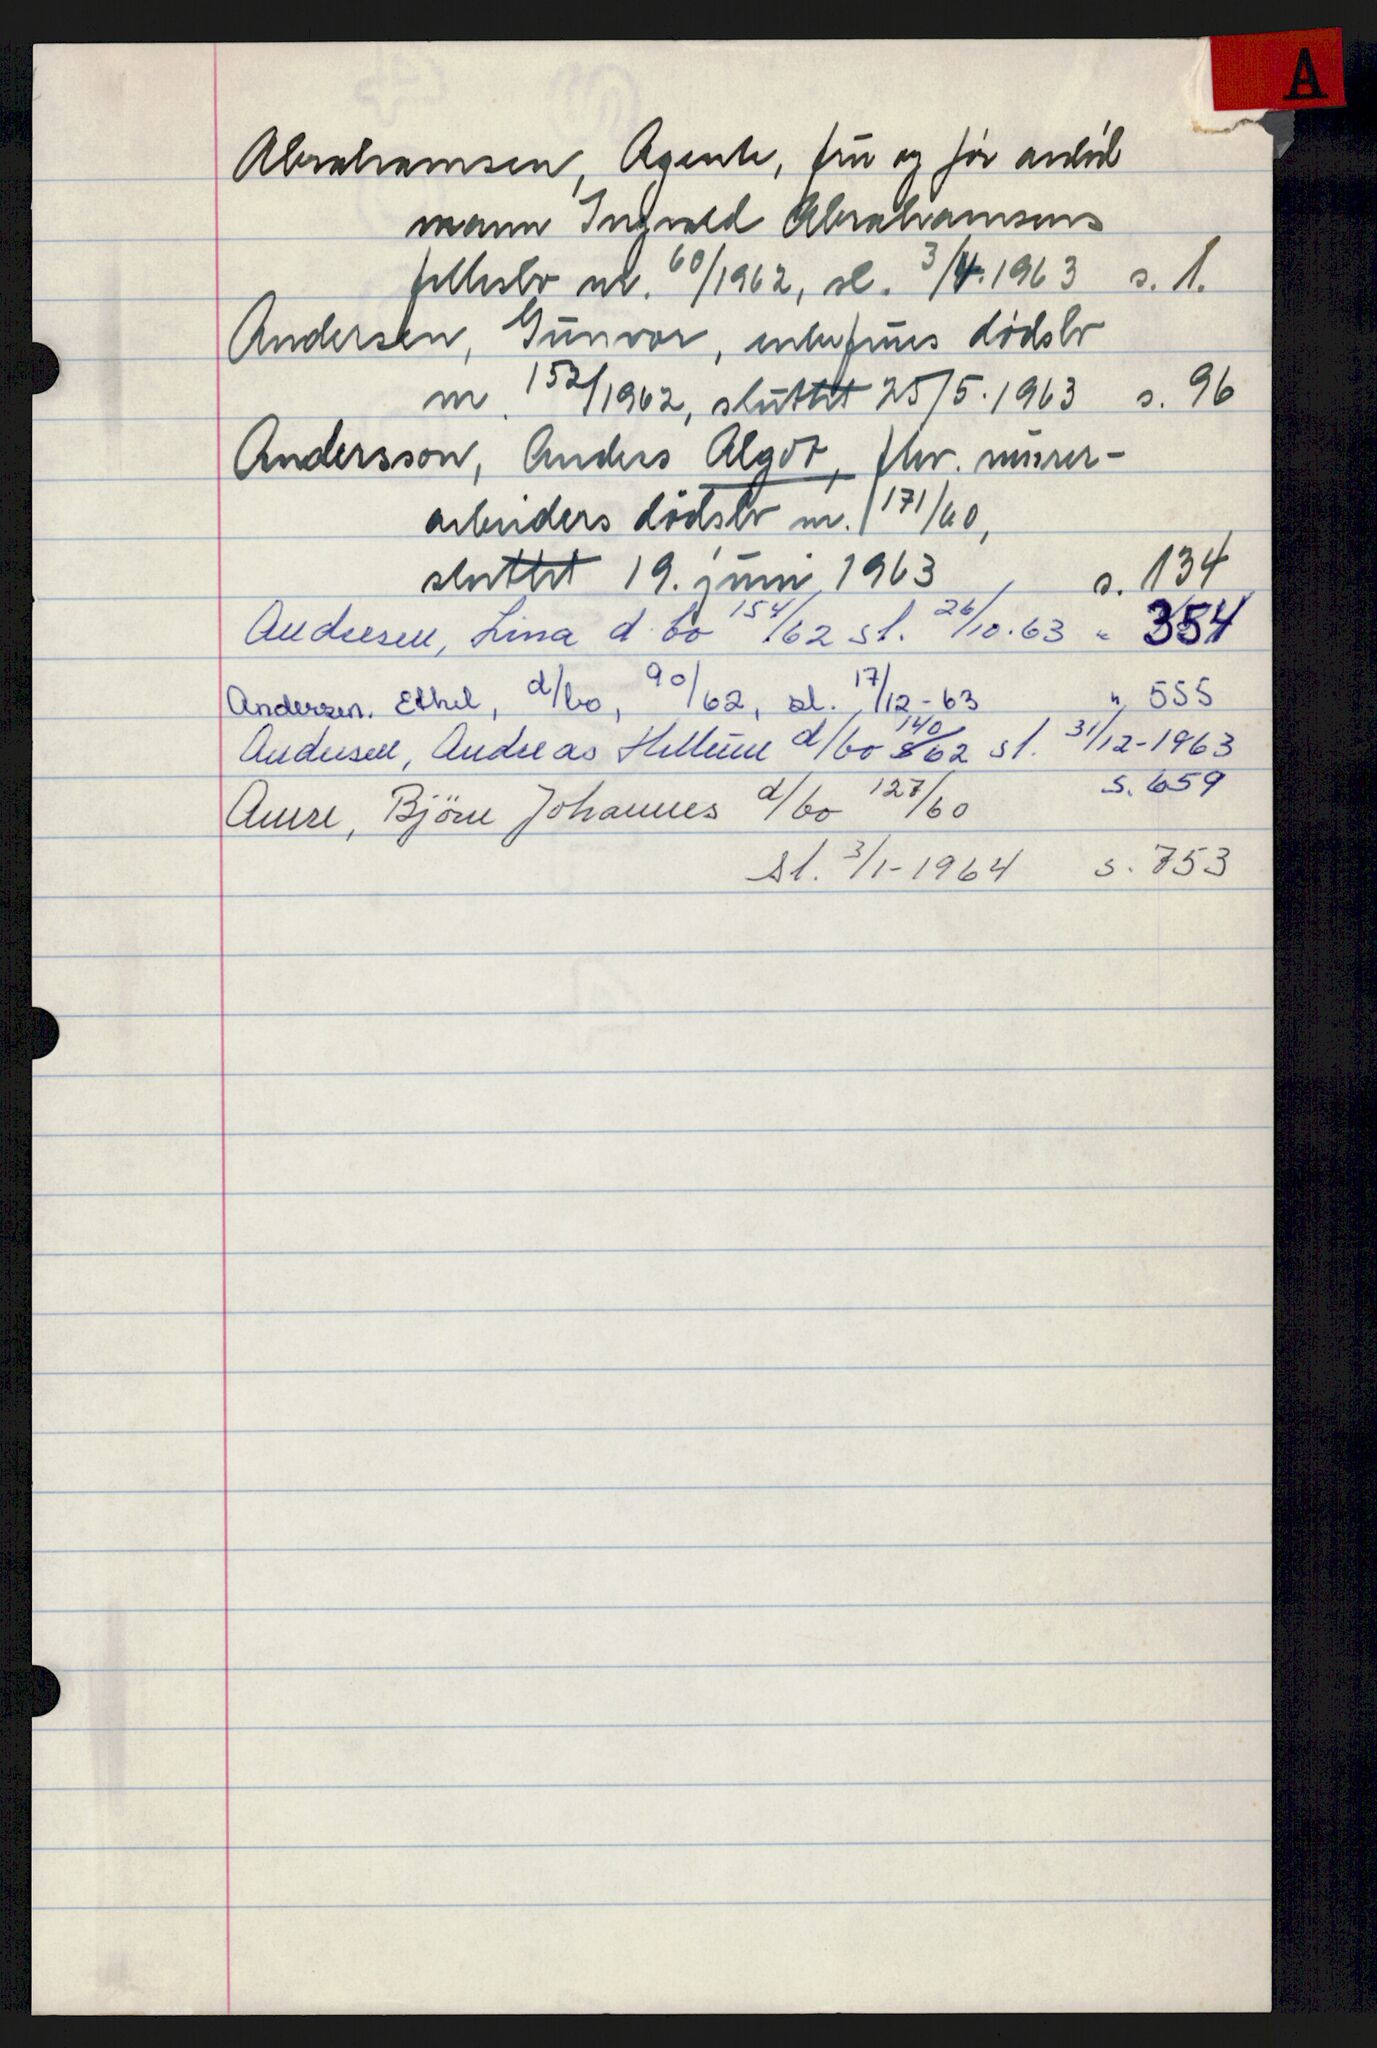 A
Abrahamsen, Agente, fru og før avdød
mann Ingvald Abrahamsens
fellesbo nr. 60/1962, sl. 3/4.1963 s. 1.
Andersen, Gunvor, enkefrues dødsbo
nr. 152/1962, sluttet 25/5.1963 s. 96
Andersson, Anders Algot, fhv. murer-
arbeiders dødsbo nr. 171/60,
sluttet 19. juni 1963 s. 134
Andresen, Lina d. bo 154/62 sl. 26/10.63 " 354
Andersen. Ethel, d/bo, 90/62, sl. 17/12-63 " 555
Andersen, Andreas d/bo 140/62 sl. 31/12-1963
s. 659
Björn Johannes d/bo 127/60
sl. 3/1-1964 s. 753